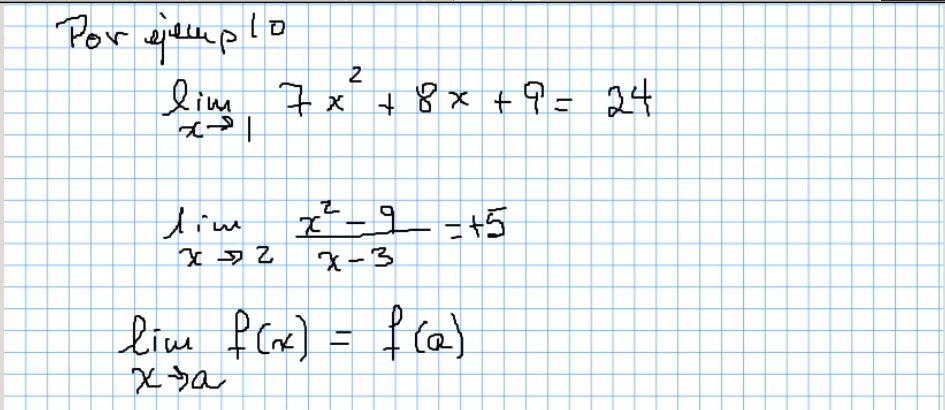 Por ejemplo
lim x→1 7x² + 8x + 9 = 24
lim x→2 (x² - 9)/(x - 3) = +5
lim x→a f(x) = f(a)